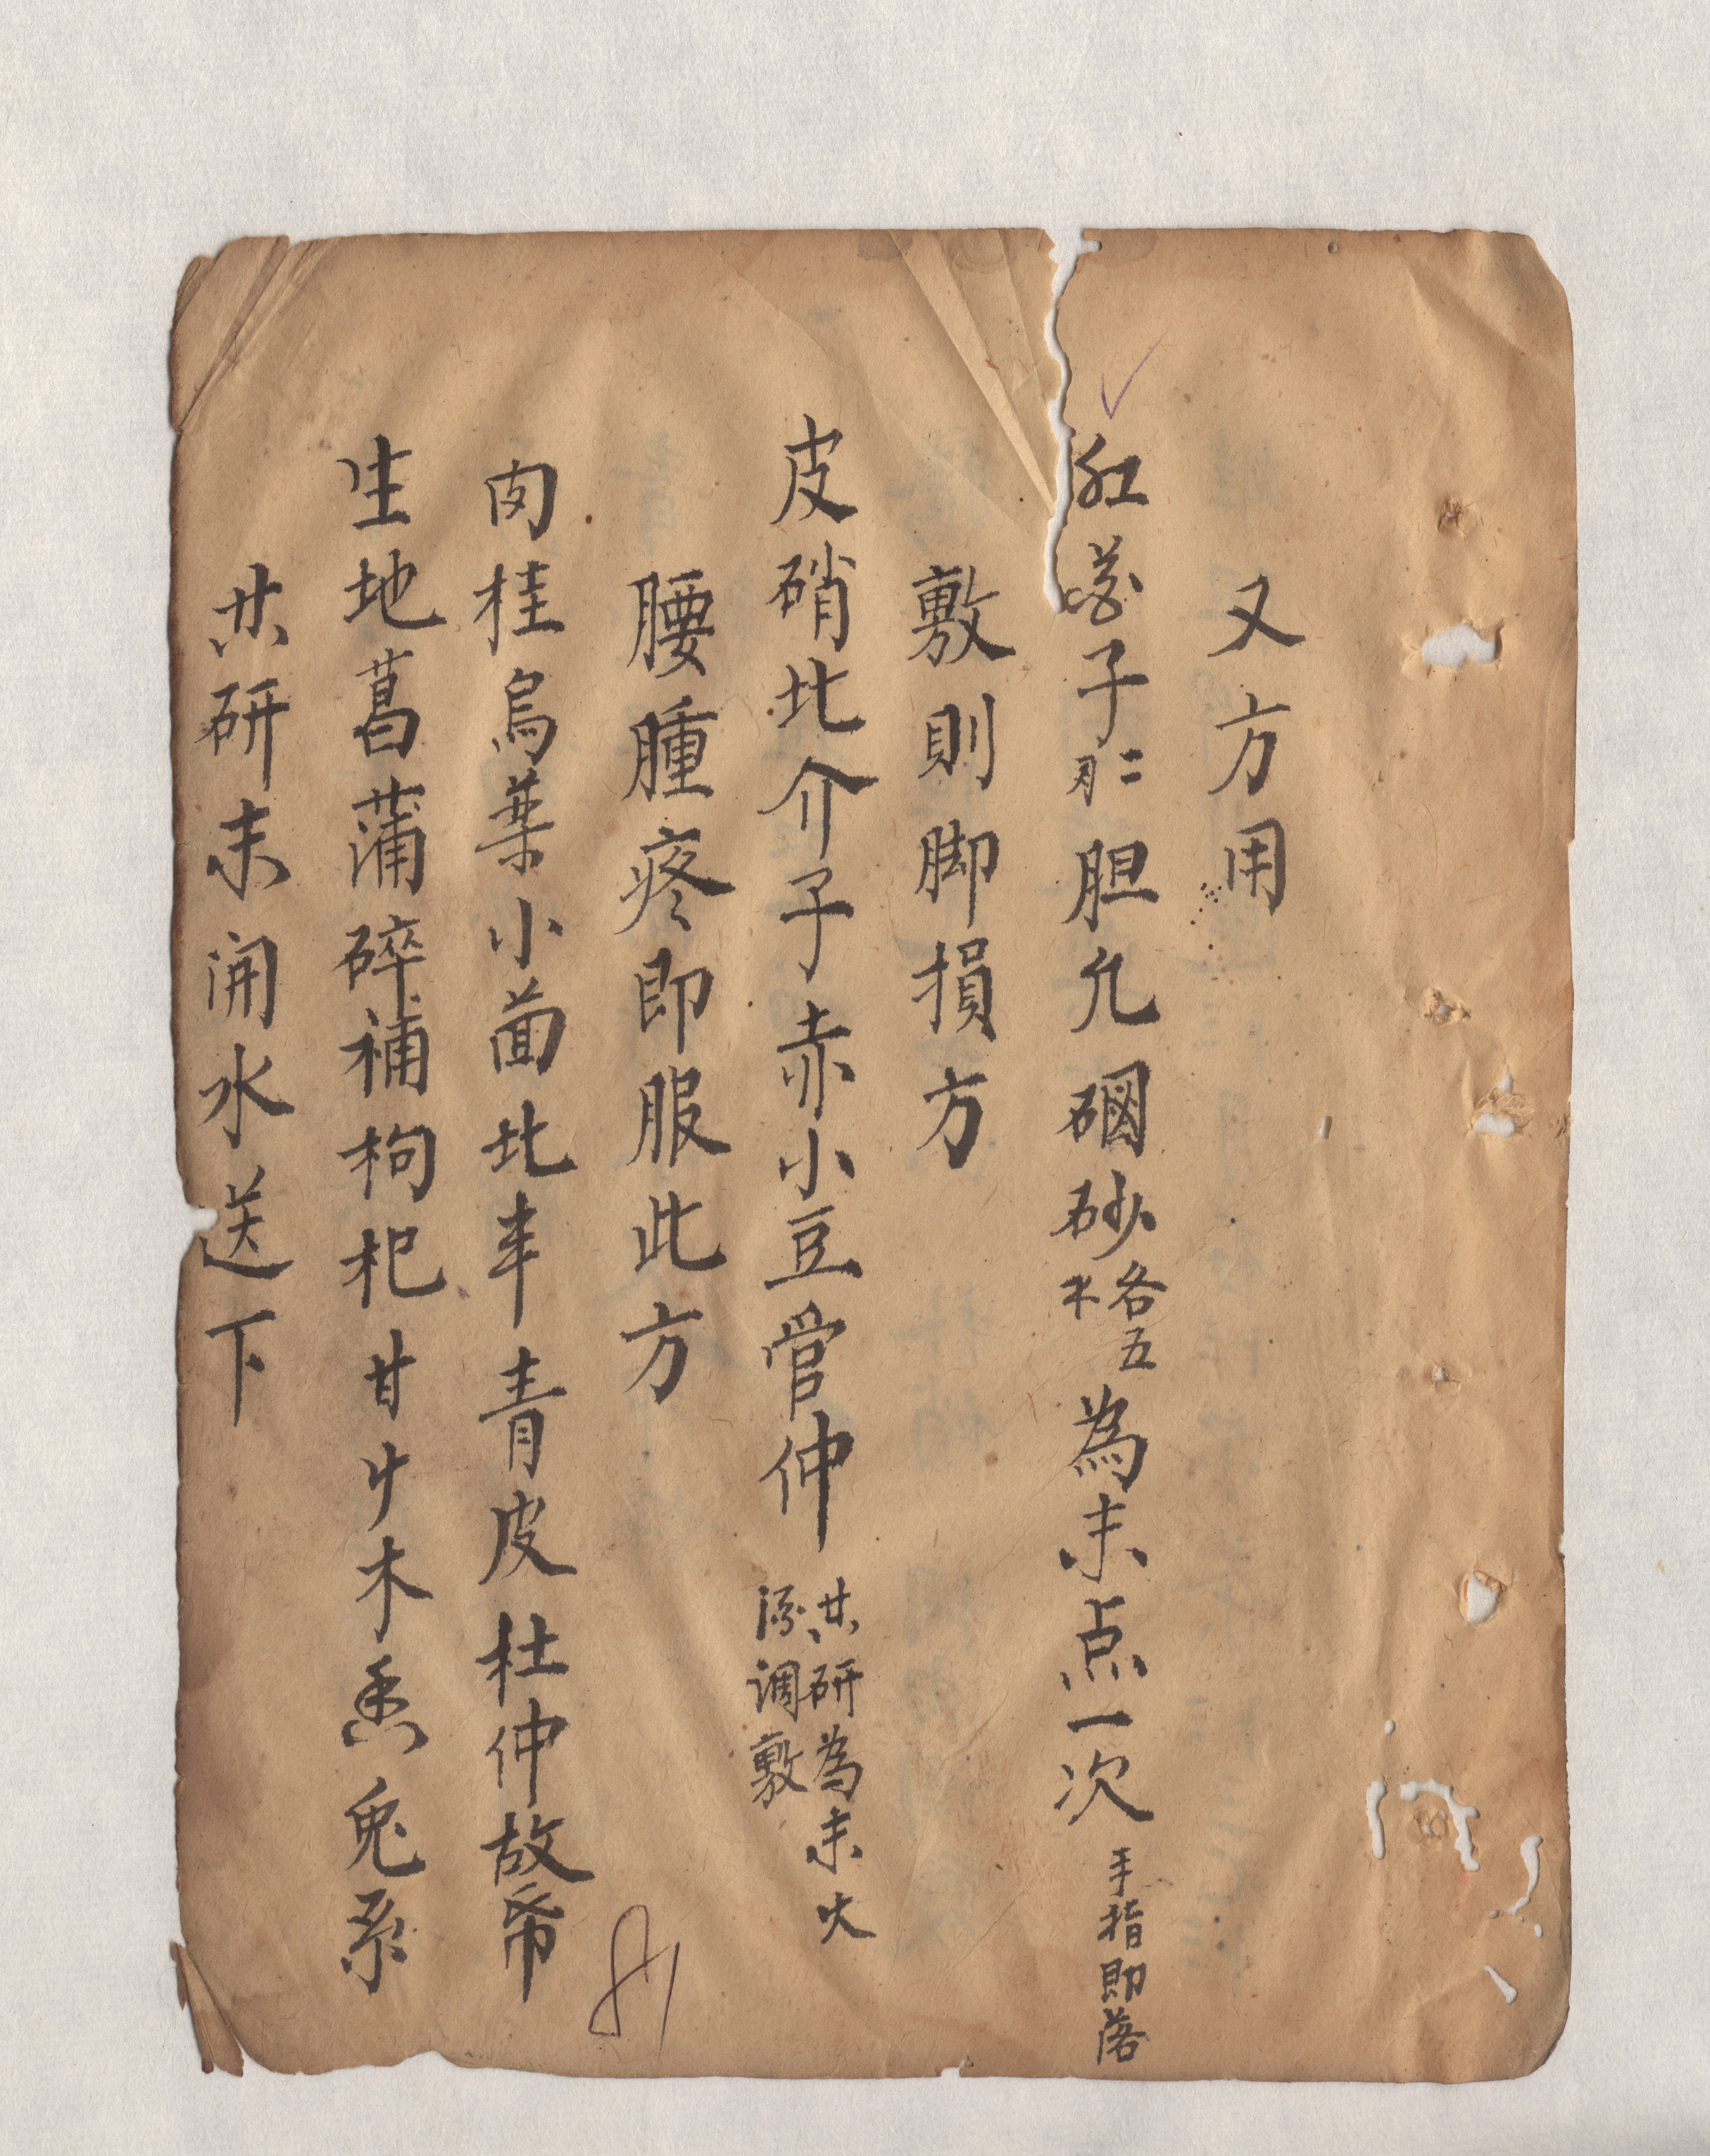 又方用
紅茶子二钱胆凢硇砂各五不為末点一次手指即落
敷則脚損方
皮硝北介子赤小豆管仲共研為末火湯調敷
腰腫疼即服此方
肉桂烏葉小茴北丰青皮杜仲故帋
生地菖蒲碎補枸杞甘廾木香兎系
共研末開水送下